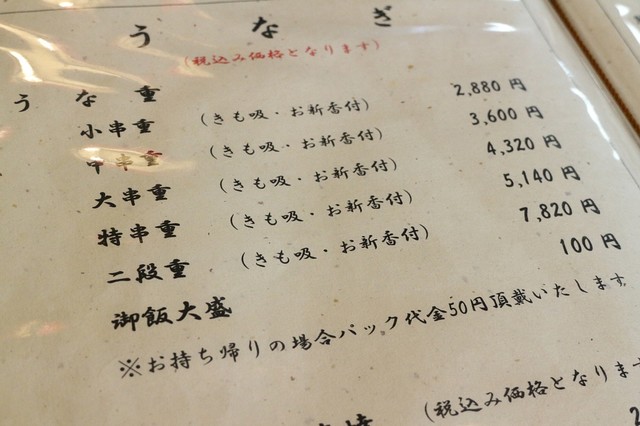 うなぎ
(税込み価格となります)
うな重
小串重 (きも吸・お新香付) 2,880 円
中串重 (きも吸・お新香付) 3,600 円
大串重 (きも吸・お新香付) 4,320 円
特串重 (きも吸・お新香付) 5,140 円
二段重 (きも吸・お新香付) 7,820 円
御飯大盛 100 円
※お持ち帰りの場合パック代金50円頂戴いたします
(税込み価格となりま